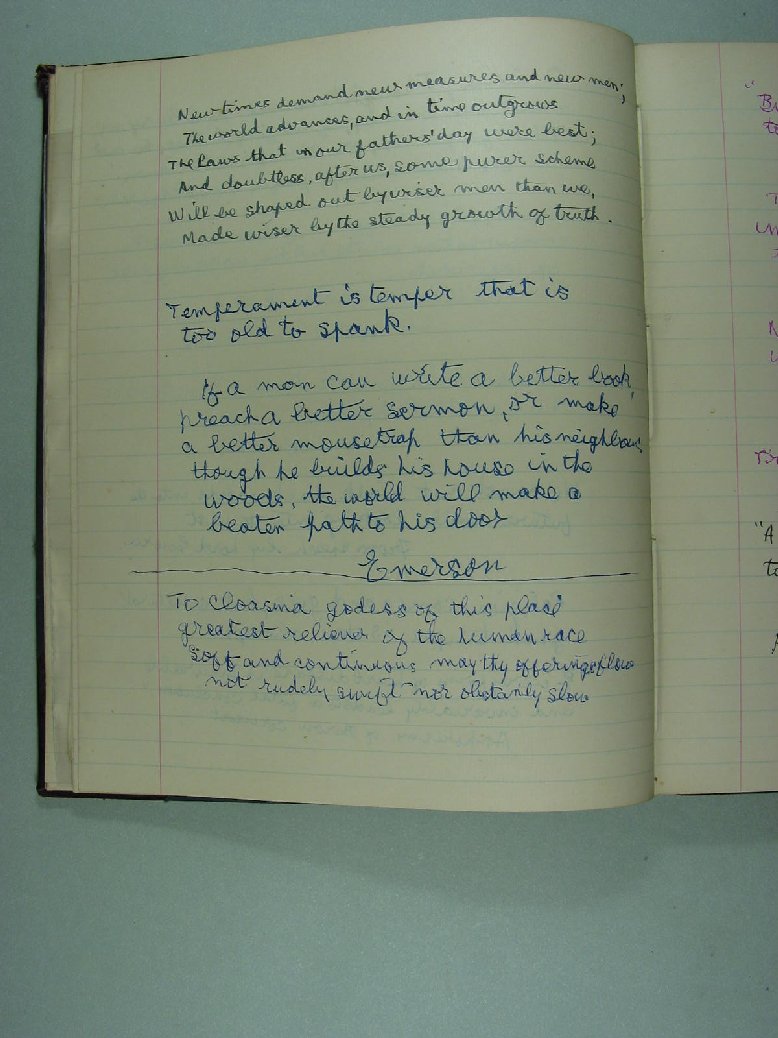 New times demand new measures and new men;
The world advances, and in time outgrows
The Laws that in our fathers' day were best;
And doubtless, after us, some purer scheme
Will be shaped out by wiser men than we,
Made wiser by the steady growth of truth.
Temperament is temper that is
too old to spank.
If a man can write a better book,
preach a better sermon, or make
a better mousetrap than his neighbour
though he builds his house in the
woods, the world will make a
beaten path to his door
Emerson
To Cloasina godess of this place
greatest reliever of the human race
Soft and continuous may thy offerings flow
not rudely swift nor obstantly slow
"A